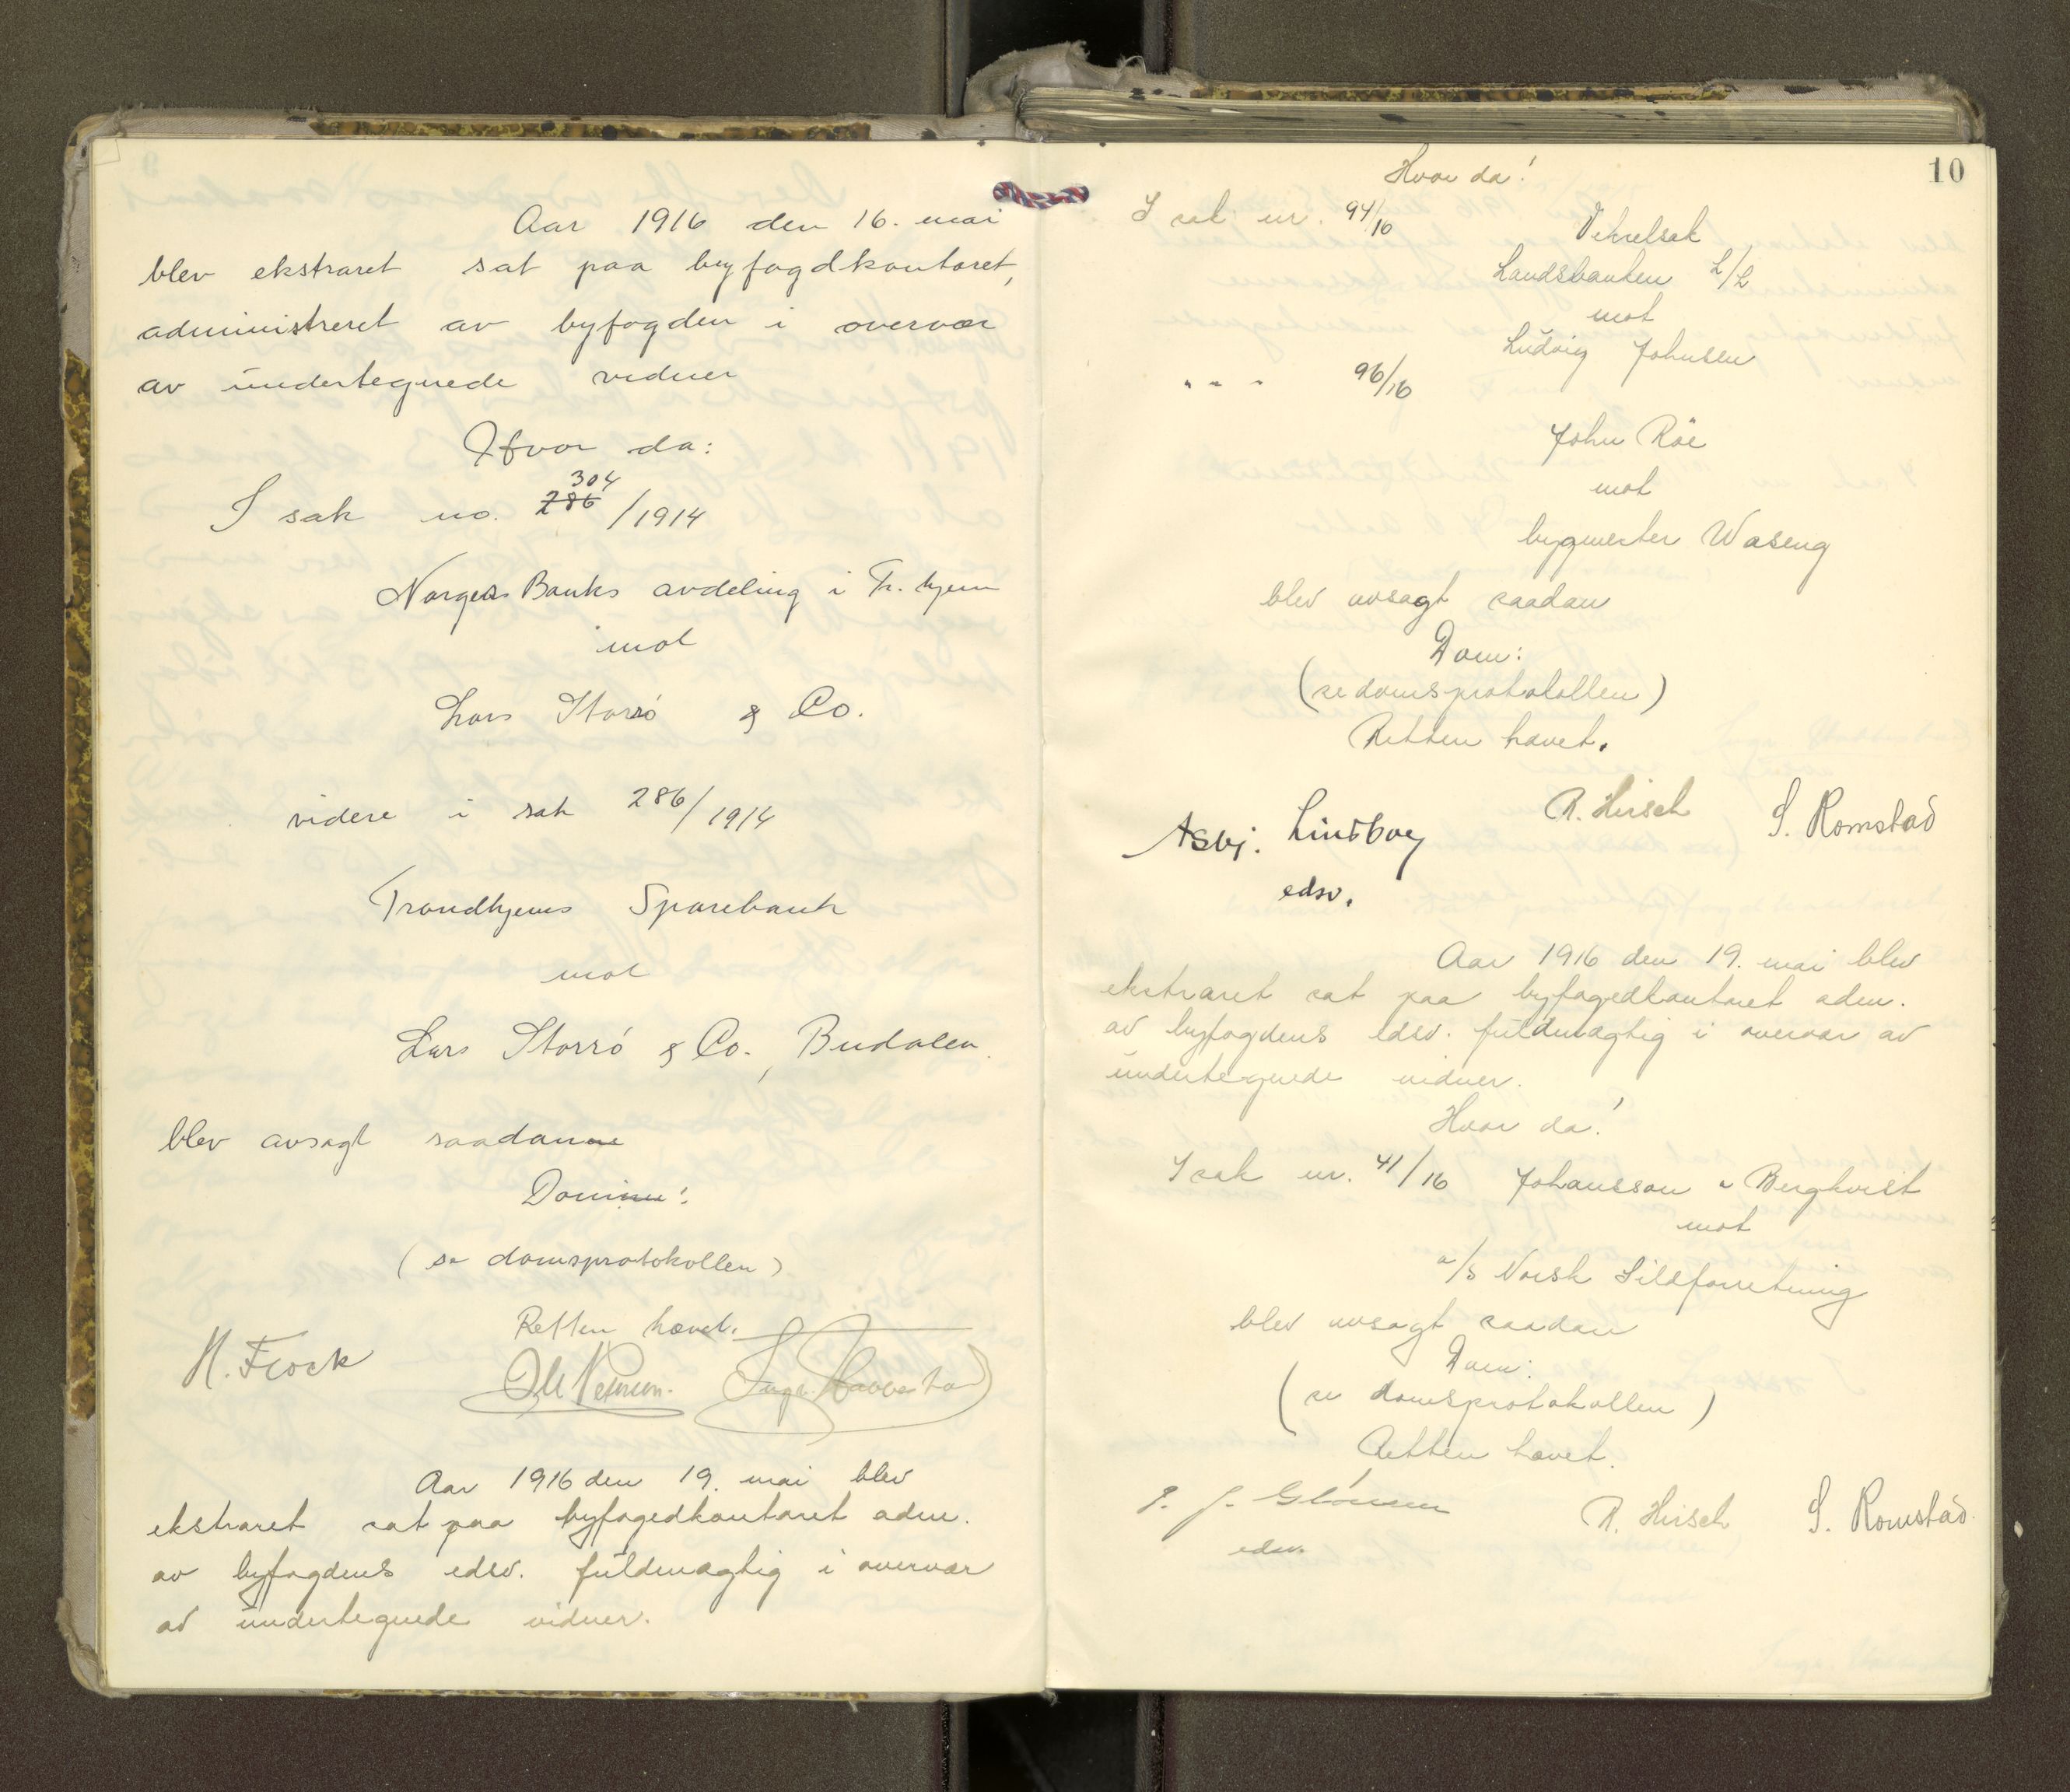 Aar 1916 den 16. mai
blev ekstraret sat paa byfogdkontoret,
administreret av byfogden i overvær
av undertegnede vidner
Hvor da:
304
I sak no. 286/1914
Norges Banks avdeling i Tr.hjem
mot
Lars Storrö & Co.
videre i sak 286/1914
Trondhjems Sparebank
mot
Lars Storrö & Co., Budalen
blev avsagt saadanne
Domme:
(se domsprotokollen)
Retten hævet.
H. Frock
Aar 1916 den 19. mai blev
ekstraret sat paa byfogedkontoret adm.
av byfogdens edsv. fuldmægtig i overvær
av undertegnede vidner.
10
Hvor da!
I sak nr. 94/16
Vekselsak
Landsbanken L/L
mot
Ludvig Johnsen
" " " 96/16
John Röe
mot
bygmester Waseng
blev avsagt saadan
Dom:
(se domsprotokollen)
Retten hævet.
Asbj. Lindboe R. Hirsch S. Romstad
edsv.
Aar 1916 den 19. mai blev
ekstraret sat paa byfogedkontoret adm.
av byfogdens edsv. fuldmægtig i overvær av
undertegnede vidner.
Hvor da!
I sak nr. 41/16 Johansson & Bergkvist
mot
a/s Norsk Sildforretning
blev avsagt saadan
Dom:
(se domsprotokollen)
Retten hævet.
R. Hirsch S. Romstad
edsv.